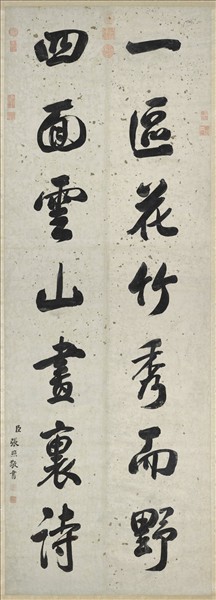 一區花竹秀而野
四面雲山畫裏詩
臣張照敬書